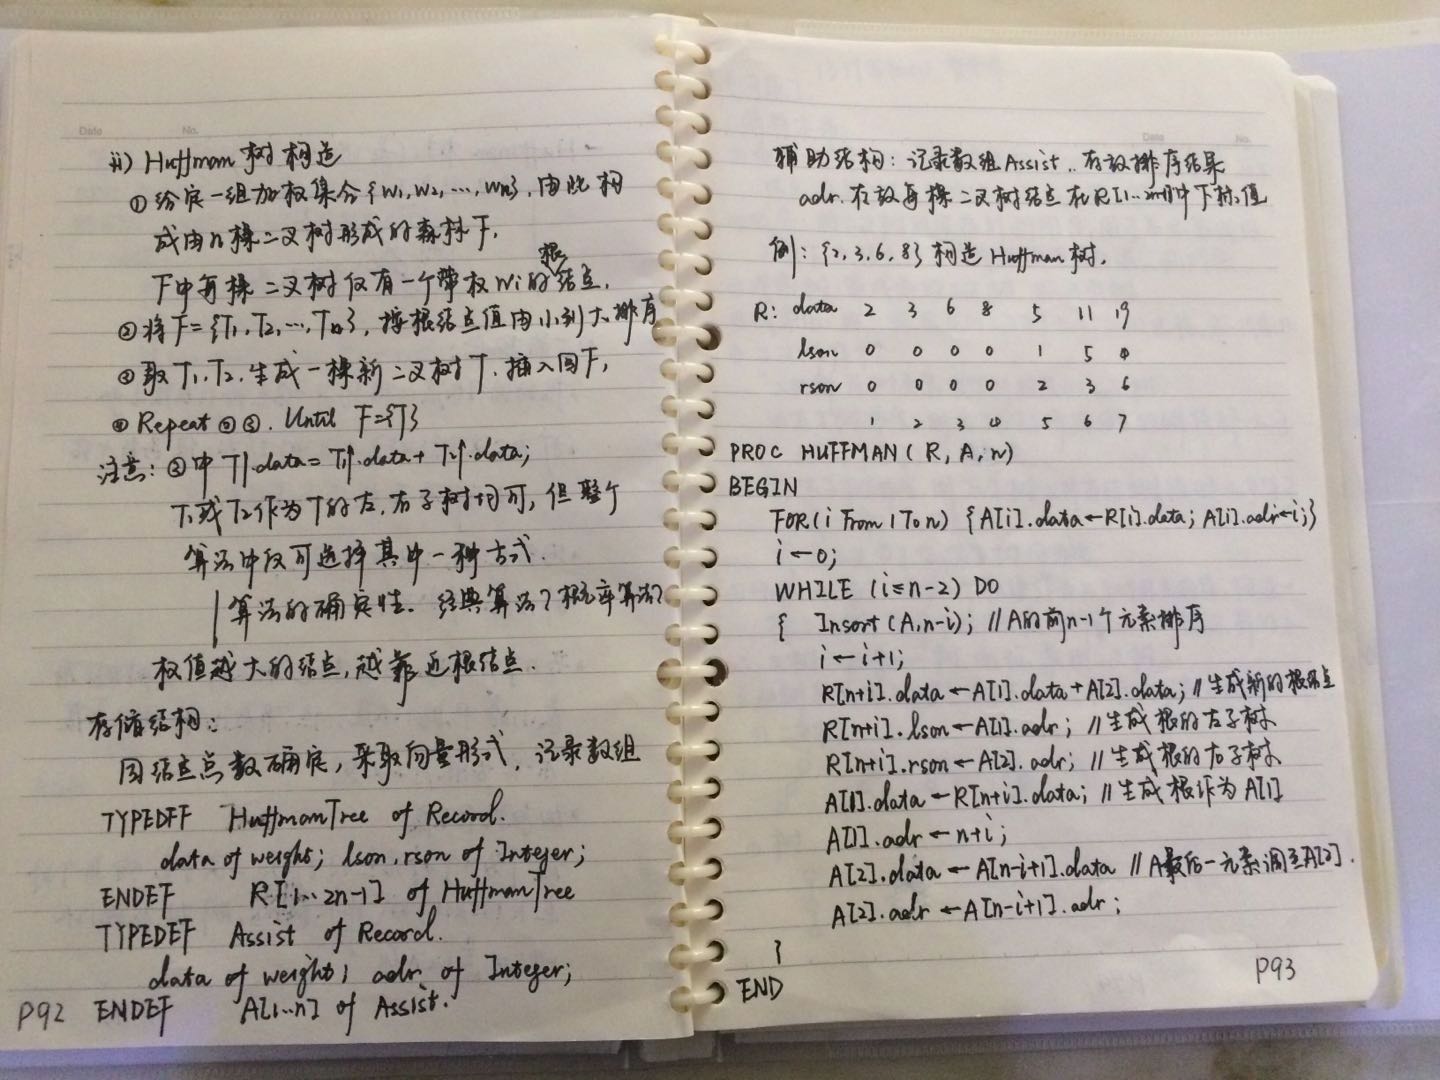 Date No.
ii) Huffman 树构造
①给定一组加权集合{w1, w2, ..., wn}, 由此构
成由n棵二叉树形成的森林F,
F中每棵二叉树仅有一个带权wi的根结点.
②将F={T1, T2, ..., Tn}, 按根结点值由小到大排序
③取T1, T2, 生成一棵新二叉树T, 插入回F,
④Repeat ②③. Until F={T}
注意: ③中 T↑.data=T1↑.data+T2↑.data;
T1或T2作为T的左,右子树均可, 但整个
算法中仅可选择其中一种方式.
算法的确定性. 经典算法? 概率算法?
权值越大的结点, 越靠近根结点.
存储结构:
因结点点数确定, 采取向量形式, 记录数组
TYPEDEF HuffmanTree of Record.
data of weight; lson, rson of Integer;
ENDEF R[1...2n-1] of HuffmanTree
TYPEDEF Assist of Record.
data of weight; adr. of Integer;
P92 ENDEF A[1...n] of Assist.
Date No.
辅助结构: 记录数组Assist, 存放排序结果
adr. 存放每棵二叉树结点在R[1...2n-1]中下标值
例: {2,3,6,8}构造Huffman树.
R: data 2 3 6 8 5 11 19
lson 0 0 0 0 1 5 4
rson 0 0 0 0 2 3 6
1 2 3 4 5 6 7
PROC HUFFMAN(R, A, n)
BEGIN
FOR(i From 1 To n) {A[i].data←R[i].data; A[i].adr←i;}
i←0;
WHILE (i≤n-2) DO
{ Insort(A, n-i); //A的前n-i个元素排序
i←i+1;
R[n+i].data←A[1].data+A[2].data; //生成新的根结点
R[n+i].lson←A[1].adr; //生成根的左子树
R[n+i].rson←A[2].adr; //生成根的右子树
A[1].data←R[n+i].data; //生成根作为A[1]
A[1].adr←n+i;
A[2].data←A[n-i+1].data //A最后一元素调至A[2].
A[2].adr←A[n-i+1].adr;
}
END
P93